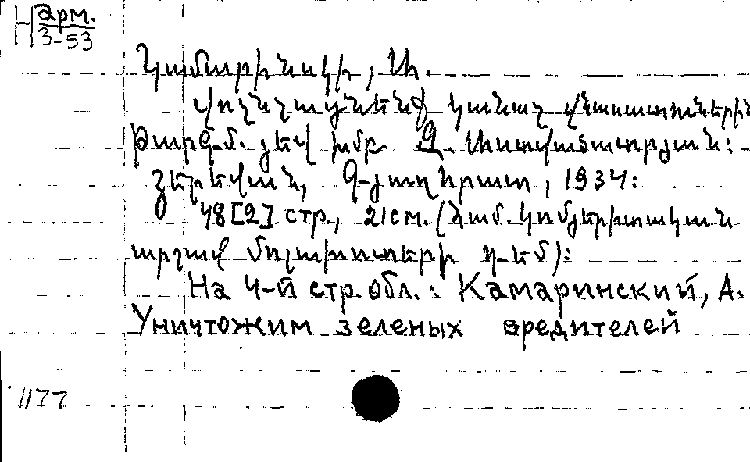 Арм.
3-53
Կամարինսկի, Ա.
Վոչնչացնենք կանաչ վնասատուներին
Թարգմ. յեվ խմբ. Զ. Աստվածատրյան:
Յերեվան, Գ-յուղհրատ, 1934:
48 [2] стр., 21 см. (Համ. կոմյերիտական
արշավ մոլախոտերի դ-եմ):
На 4-й стр. обл.: Камаринский, А.
Уничтожим зеленых вредителей
1177